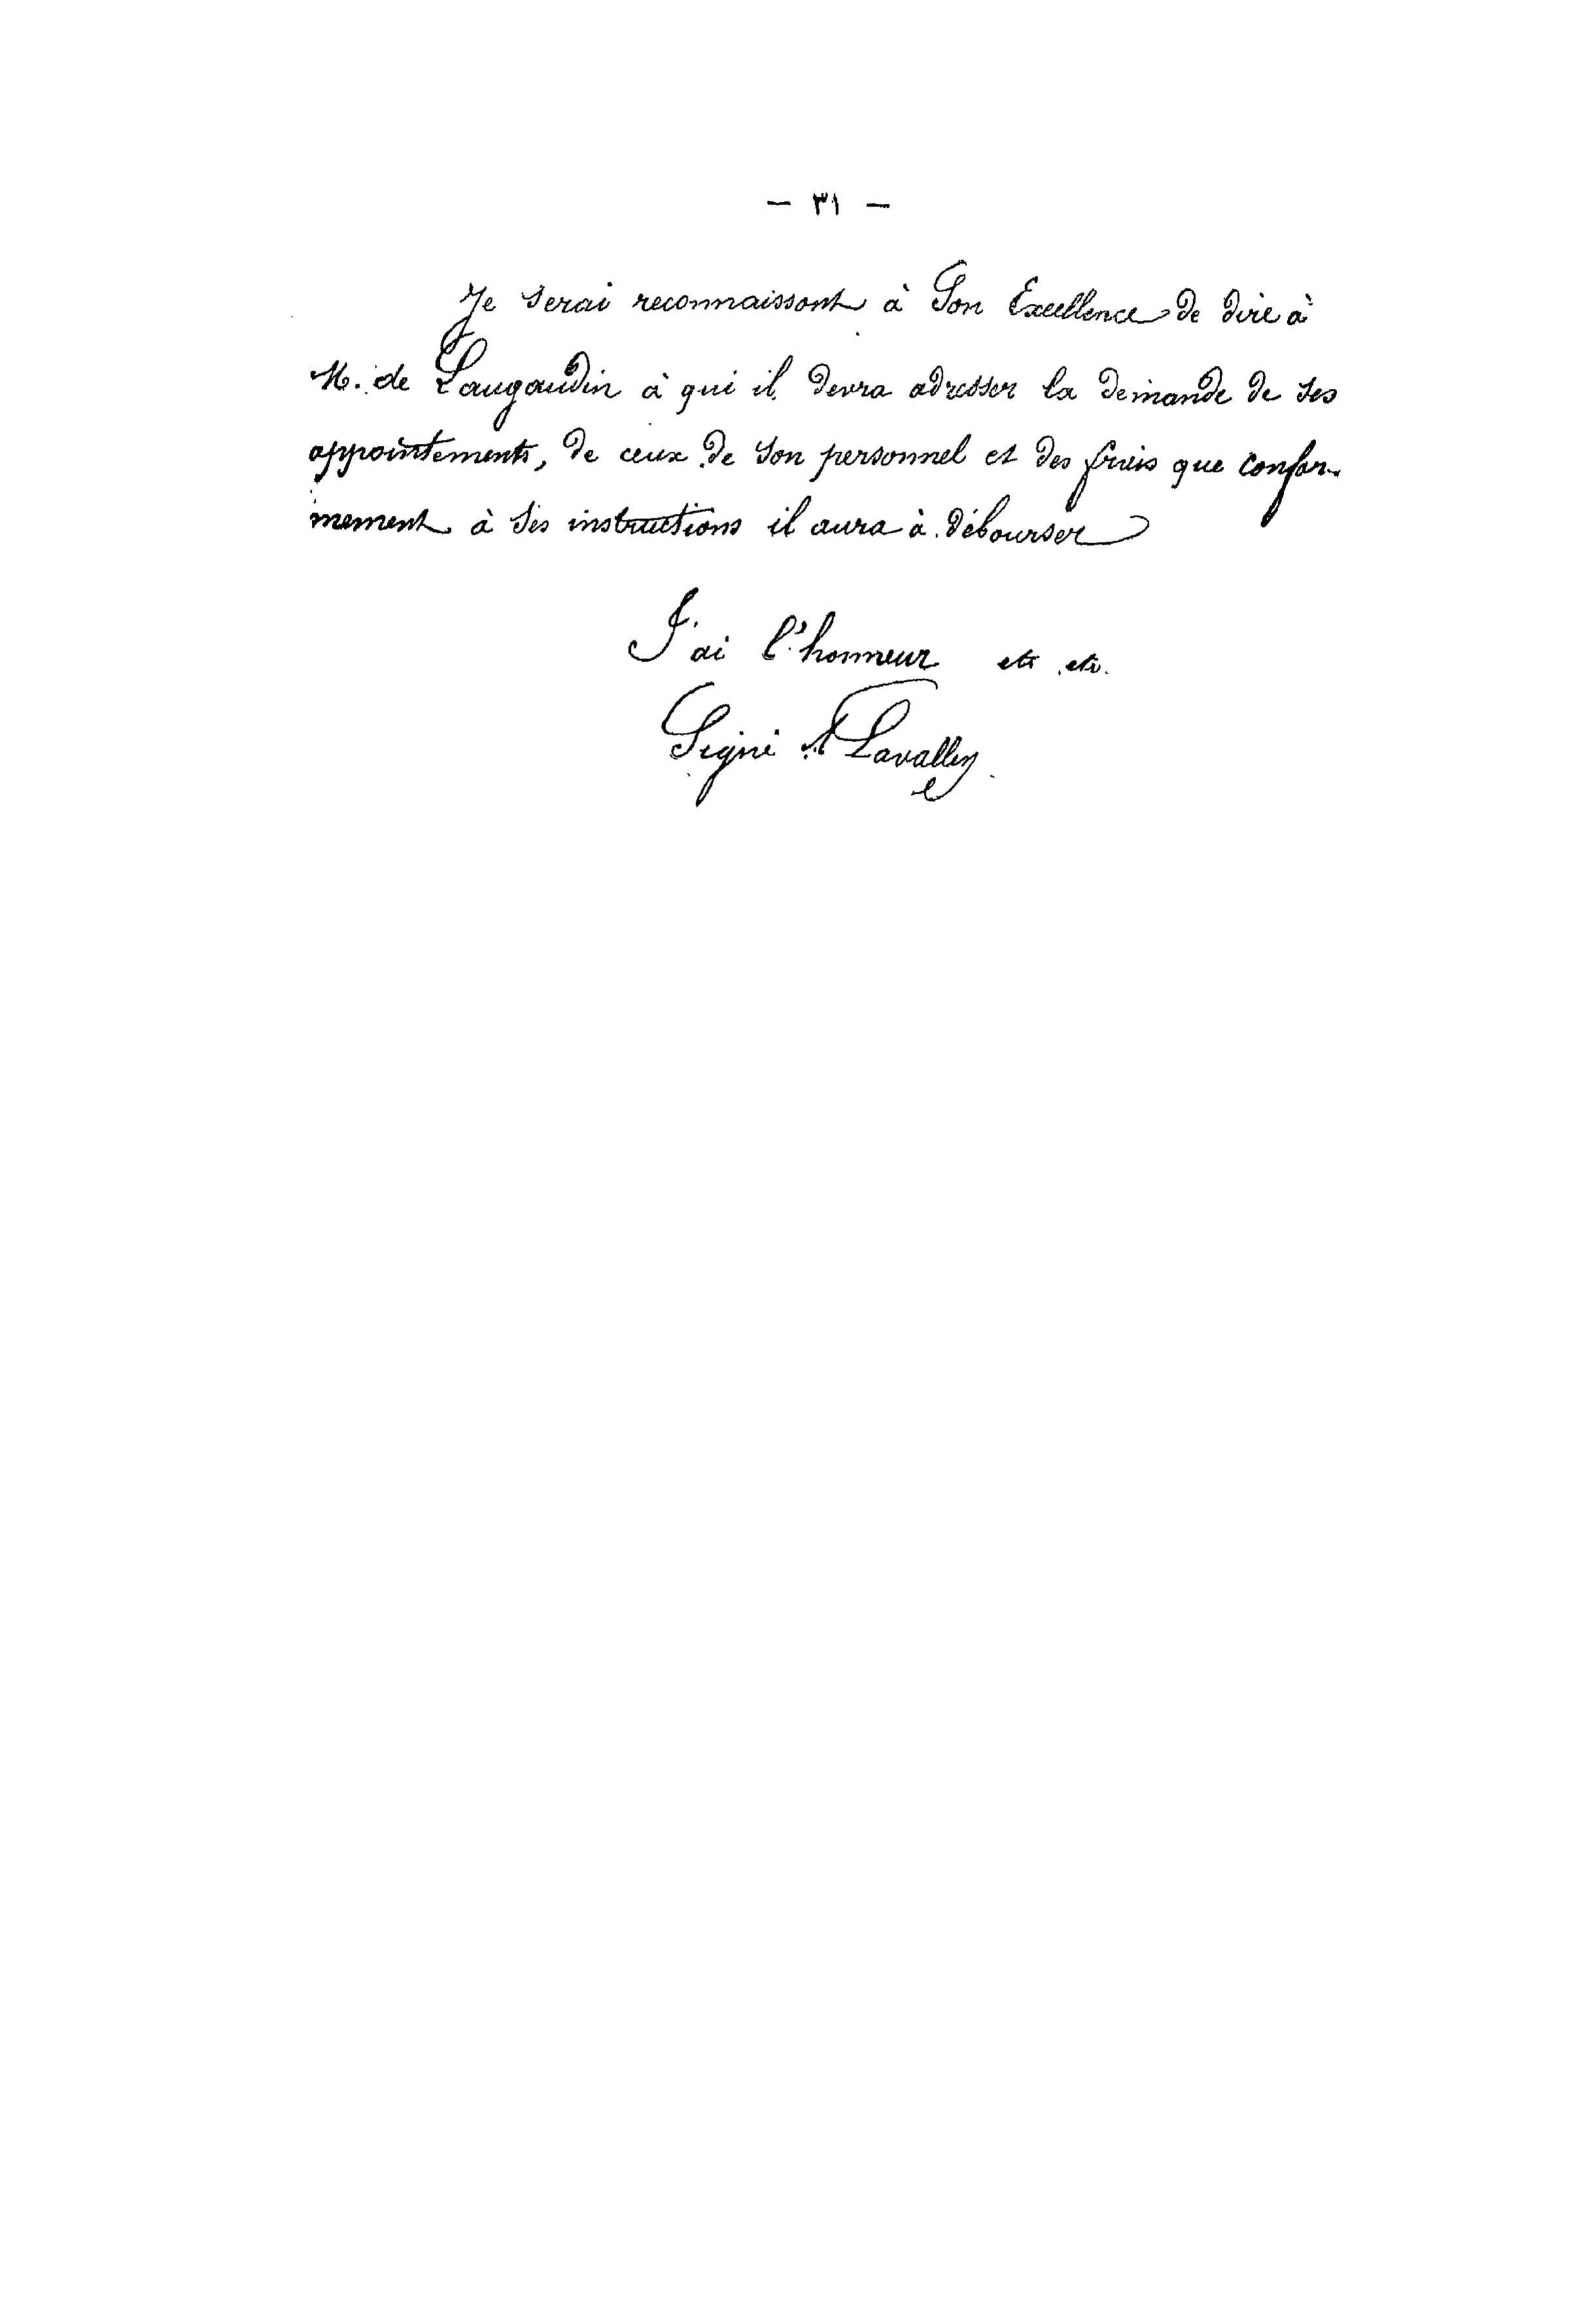 — ٣١ —
Je serai reconnaissant à Son Excellence de dire à
M. de Laugaudin à qui il devra adresser la demande de ses
appointements, de ceux de son personnel et des frais que confor-
mement à ses instructions il aura à débourser
J'ai l'honneur etc etc.
Signé A Lavalley